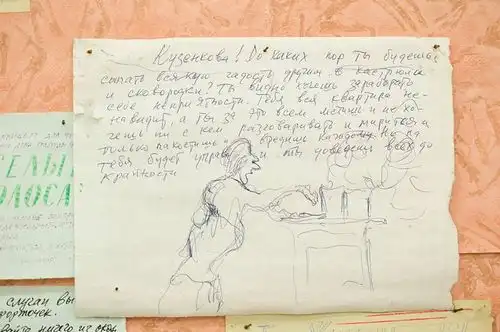 Кузенкова! До каких пор ты будешь
сыпать всякую гадость другим в кастрюли
и сковородки? Ты видно хочешь заработать
себе неприятности. Тебя вся квартира не-
навидит, а ты за это всем мстишь и не хо-
чешь ни с кем разговаривать и мириться, а
только пакостишь и вредишь каждому. Но на
тебя будет управа и ты доведешь всех до
крайности
СЕЛЫ
ОЛОСА
случаи вы
форточек.